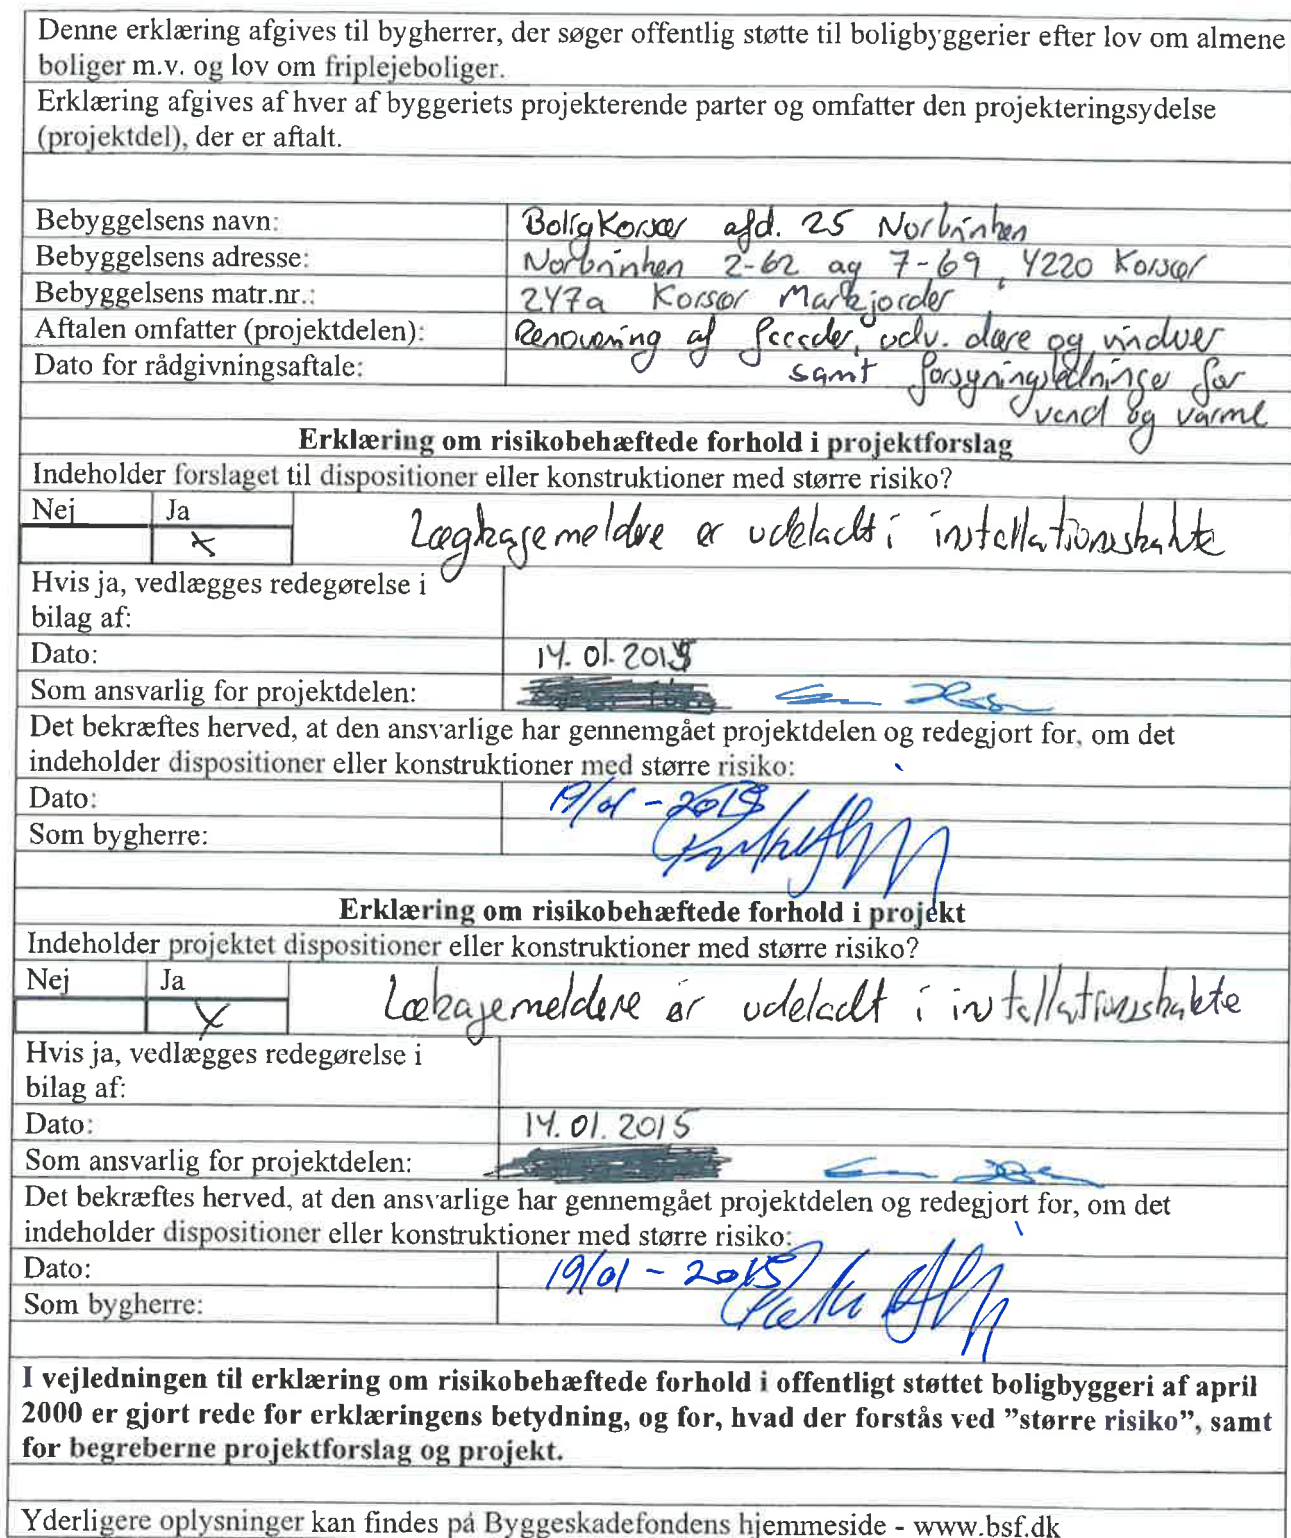 Denne erklæring afgives til bygherrer, der søger offentlig støtte til boligbyggerier efter lov om almene
boliger m.v. og lov om friplejeboliger.
Erklæring afgives af hver af byggeriets projekterende parter og omfatter den projekteringsydelse
(projektdel), der er aftalt.
Bebyggelsens navn: BoligKorsør afd. 25 Norbrinken
Bebyggelsens adresse: Norbrinken 2-62 og 7-69, 4220 Korsør
Bebyggelsens matr.nr.: 247a Korsør Markjorder
Aftalen omfatter (projektdelen): Renovering af facader, udv. døre og vinduer
Dato for rådgivningsaftale: samt forsyningsledninger for
vand og varme
Erklæring om risikobehæftede forhold i projektforslag
Indeholder forslaget til dispositioner eller konstruktioner med større risiko?
Nej Ja
x Lægkagemeldere er udeladt i installationsskakte
Hvis ja, vedlægges redegørelse i
bilag af:
Dato: 14.01.2015
Som ansvarlig for projektdelen:
Det bekræftes herved, at den ansvarlige har gennemgået projektdelen og redegjort for, om det
indeholder dispositioner eller konstruktioner med større risiko:
Dato: 19/01-2015
Som bygherre:
Erklæring om risikobehæftede forhold i projekt
Indeholder projektet dispositioner eller konstruktioner med større risiko?
Nej Ja
x Lækagemeldere er udeladt i installationsskakte
Hvis ja, vedlægges redegørelse i
bilag af:
Dato: 14.01.2015
Som ansvarlig for projektdelen:
Det bekræftes herved, at den ansvarlige har gennemgået projektdelen og redegjort for, om det
indeholder dispositioner eller konstruktioner med større risiko:
Dato: 19/01-2015
Som bygherre:
I vejledningen til erklæring om risikobehæftede forhold i offentligt støttet boligbyggeri af april
2000 er gjort rede for erklæringens betydning, og for, hvad der forstås ved ”større risiko”, samt
for begreberne projektforslag og projekt.
Yderligere oplysninger kan findes på Byggeskadefondens hjemmeside - www.bsf.dk